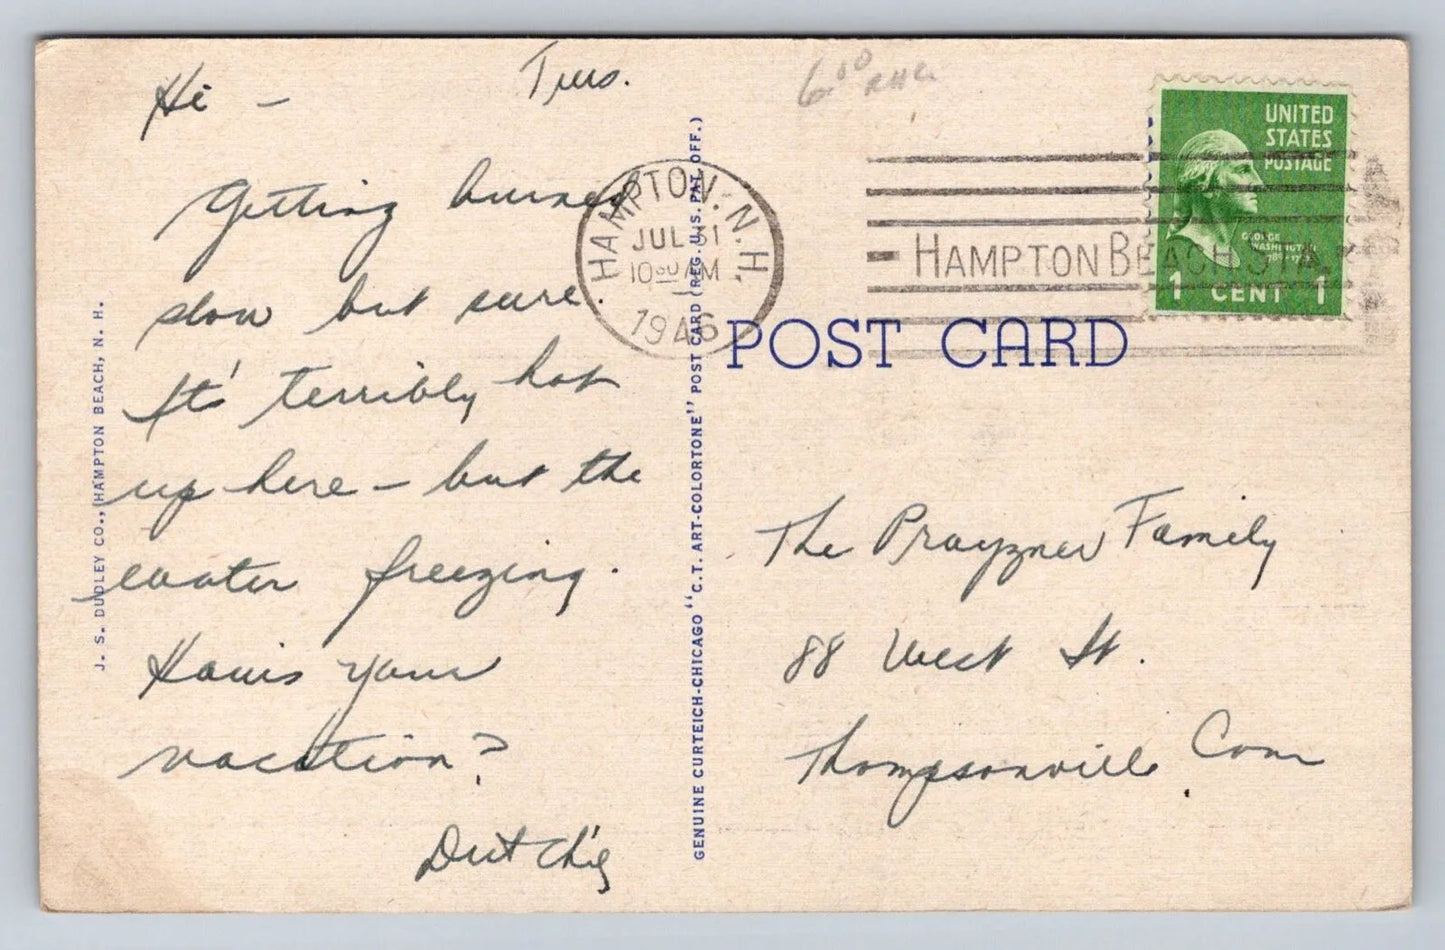 Tues.
Hi -
Getting burned
slow but sure.
It's terribly hot
up here - but the
water freezing.
How's your
vacation?
Dutchie
J. S. DUDLEY CO., HAMPTON BEACH, N. H.
GENUINE CURTEICH-CHICAGO "C.T. ART-COLORTONE" POST CARD (REG. U.S. PAT. OFF.)
6.00
HAMPTON, N. H.
JUL 31
10 30 AM
1946
HAMPTON BEACH STA.
UNITED
STATES
POSTAGE
GEORGE
WASHINGTON
1 CENT 1
POST CARD
The Prayzner Family
88 West St.
Thompsonville Conn